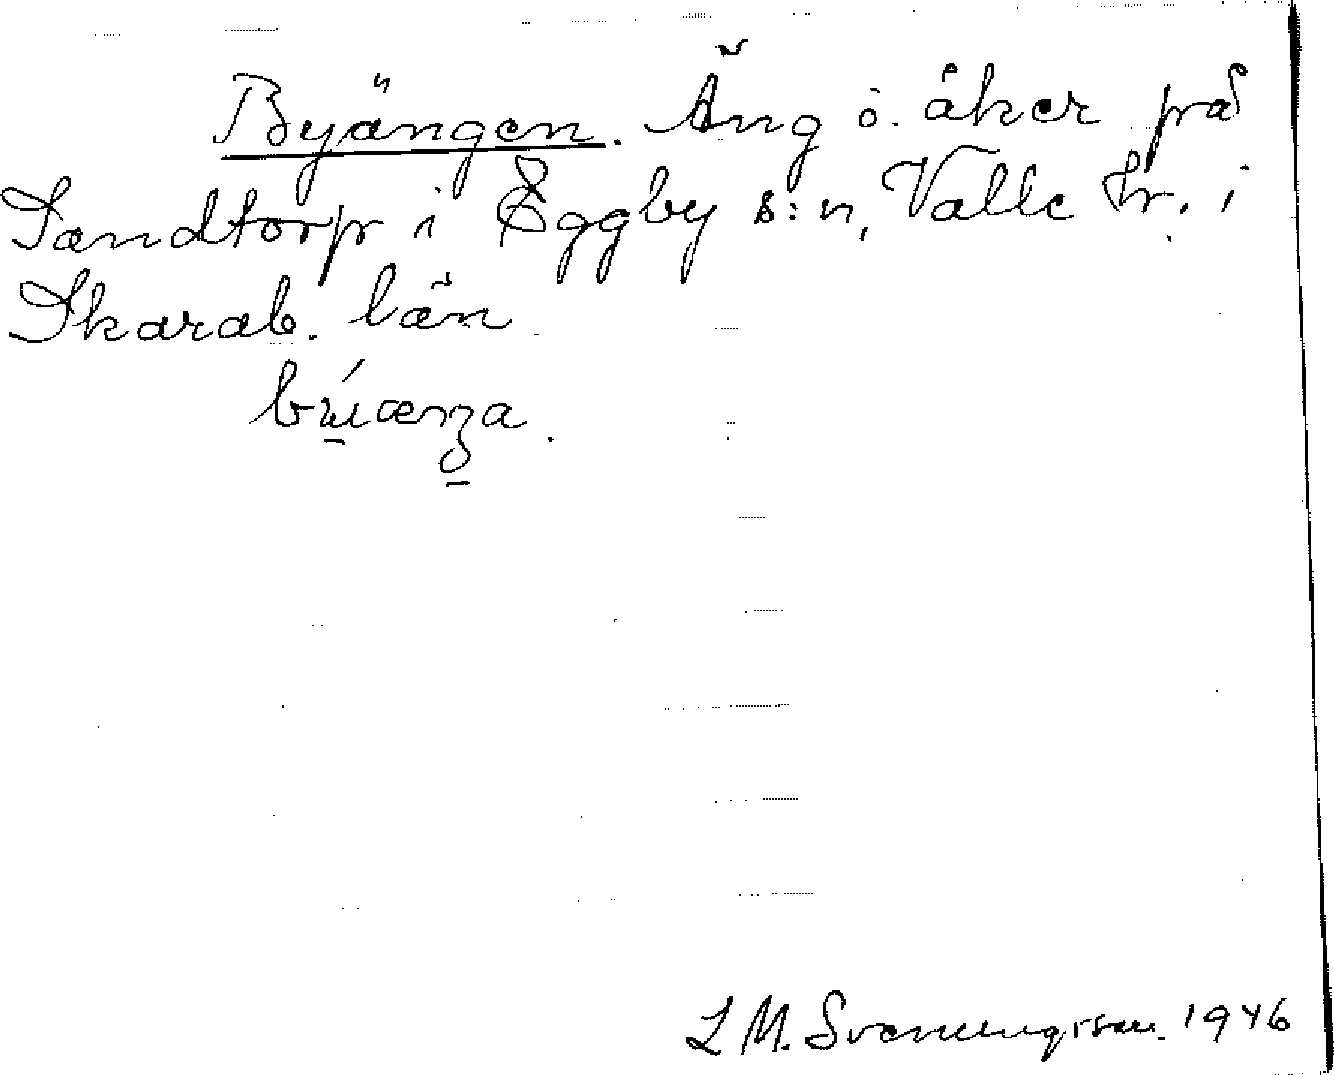 Byängen. Äng o. åker på
Sandtorp i Eggby s:n, Valle hr. i
Skarab. län
L M. Svenungsson. 1946